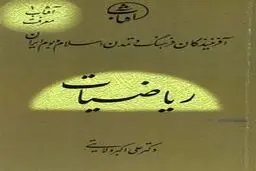 آفتاب
معرفت ۱
آفرینندگان فرهنگ و تمدن اسلام و بوم ایران
ریاضیات
دکتر علی اکبر ولایتی